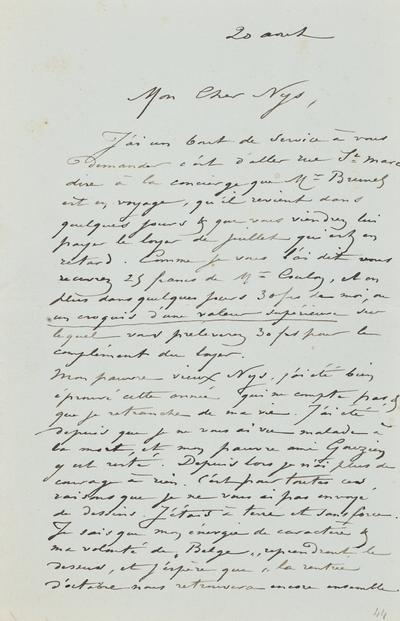 20 aout
Mon Cher Nys,
J'ai un bout de service à vous
demander c'est d'aller rue St Marc
dire à la concierge que Mr Brunel
est en voyage, qu'il revient dans
quelques jours & que vous viendrez lui
payer le loyer de juillet qui est en
retard. Comme je vous l'ai dit vous
recevrez 25 francs de Mr Coulon, et en
plus dans quelques jours 30 frs de moi, ou
un croquis d'une valeur supérieure sur
lequel vous prèleverez 30 frs pour le
complément du loyer.
Mon pauvre vieux Nys, j'ai été bien
éprouvé cette année qui ne compte pas &
que je retranche de ma vie. J'ai été
depuis que je ne vous ai vu malade à
la mort, et mon pauvre ami Gouzien
y est resté. Depuis lors je n'ai plus de
courage à rien. C'est pour toutes ces
raisons que je ne vous ai pas envoyé
de dessins. J'étais à terre et sans force.
Je sais que mon énergie de caractère &
ma volonté de „Belge„ reprendront le
dessus, et j'espère que la rentrée
d'octobre nous retrouvera encore ensemble.
44